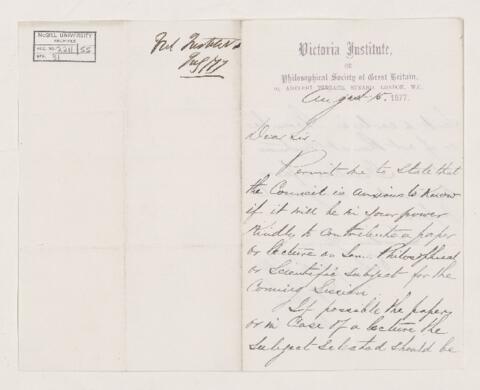 McGILL UNIVERSITY
ARCHIVES
ACC. NO. 2211/55
REF. 51
Vic Institute
Aug/77
Victoria Institute,
OR
Philosophical Society of Great Britain,
ADELPHI TERRACE, STRAND, LONDON, W.C.
August 15. 1877.
Dear Sir
Permit me to state that
the Council is anxious to know
if it will be in your power
kindly to contribute a paper
or lecture on some Philosophical
or Scientific subject for the
Coming Session.
If possible the paper,
or in case of a lecture the
subject selected should be